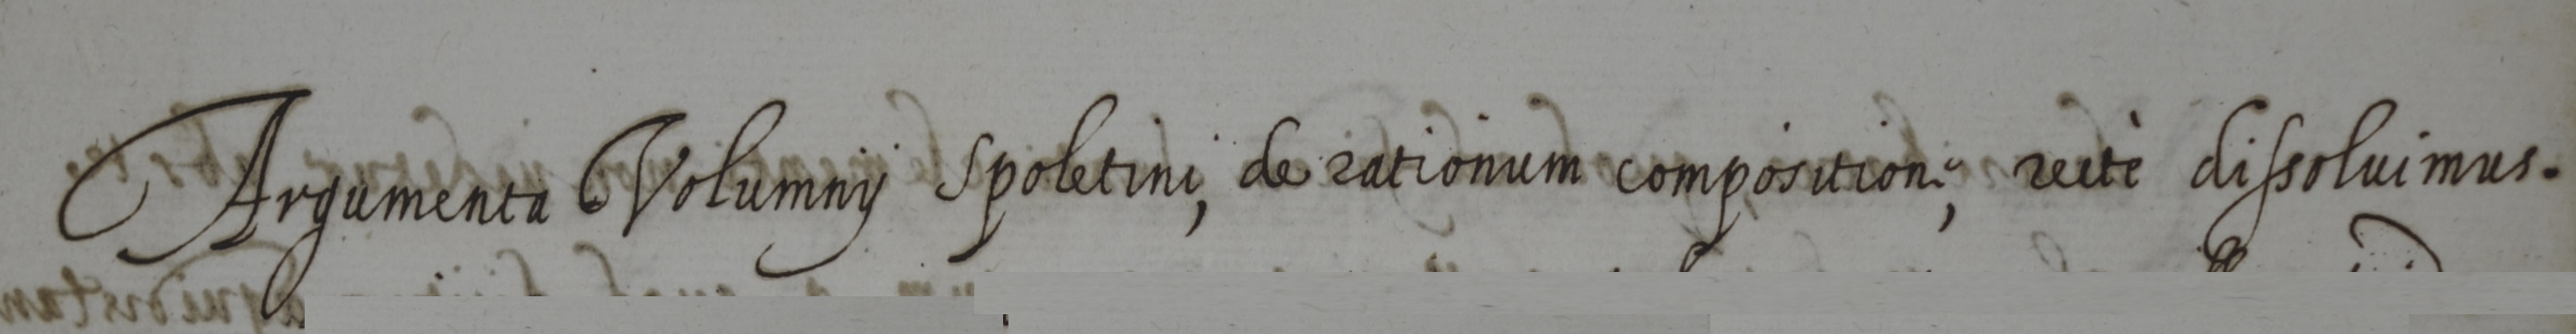 Argumenta Volumnij Spoletini, de rationum compositione, rectè dissoluimus.